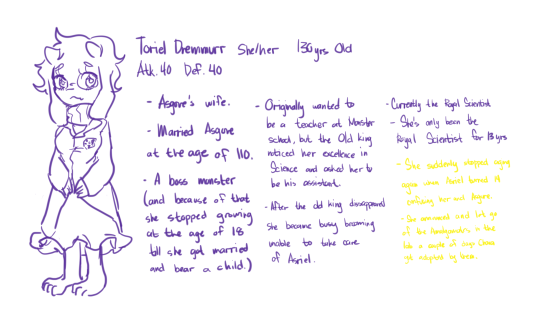 Toriel Dremmurr She/her 130 yrs Old
Atk. 40 Def. 40
- Asgore's wife.
- Married Asgore
at the age of 110.
- A boss monster
(and because of that
she stopped growing
at the age of 18
till she got married
and bear a child.)
- Originally wanted to
be a teacher at Monster
school, but the Old king
noticed her excellence in
Science and asked her to
be his assistant.
- After the old king disappeared
she became busy becoming
unable to take care
of Asriel.
- Currently the Royal Scientist
- She's only been the
Royal Scientist for 13 yrs
- She suddenly stopped aging
again when Asriel
her and Asgore
- She
of the Amalgamates in the
lab a couple of